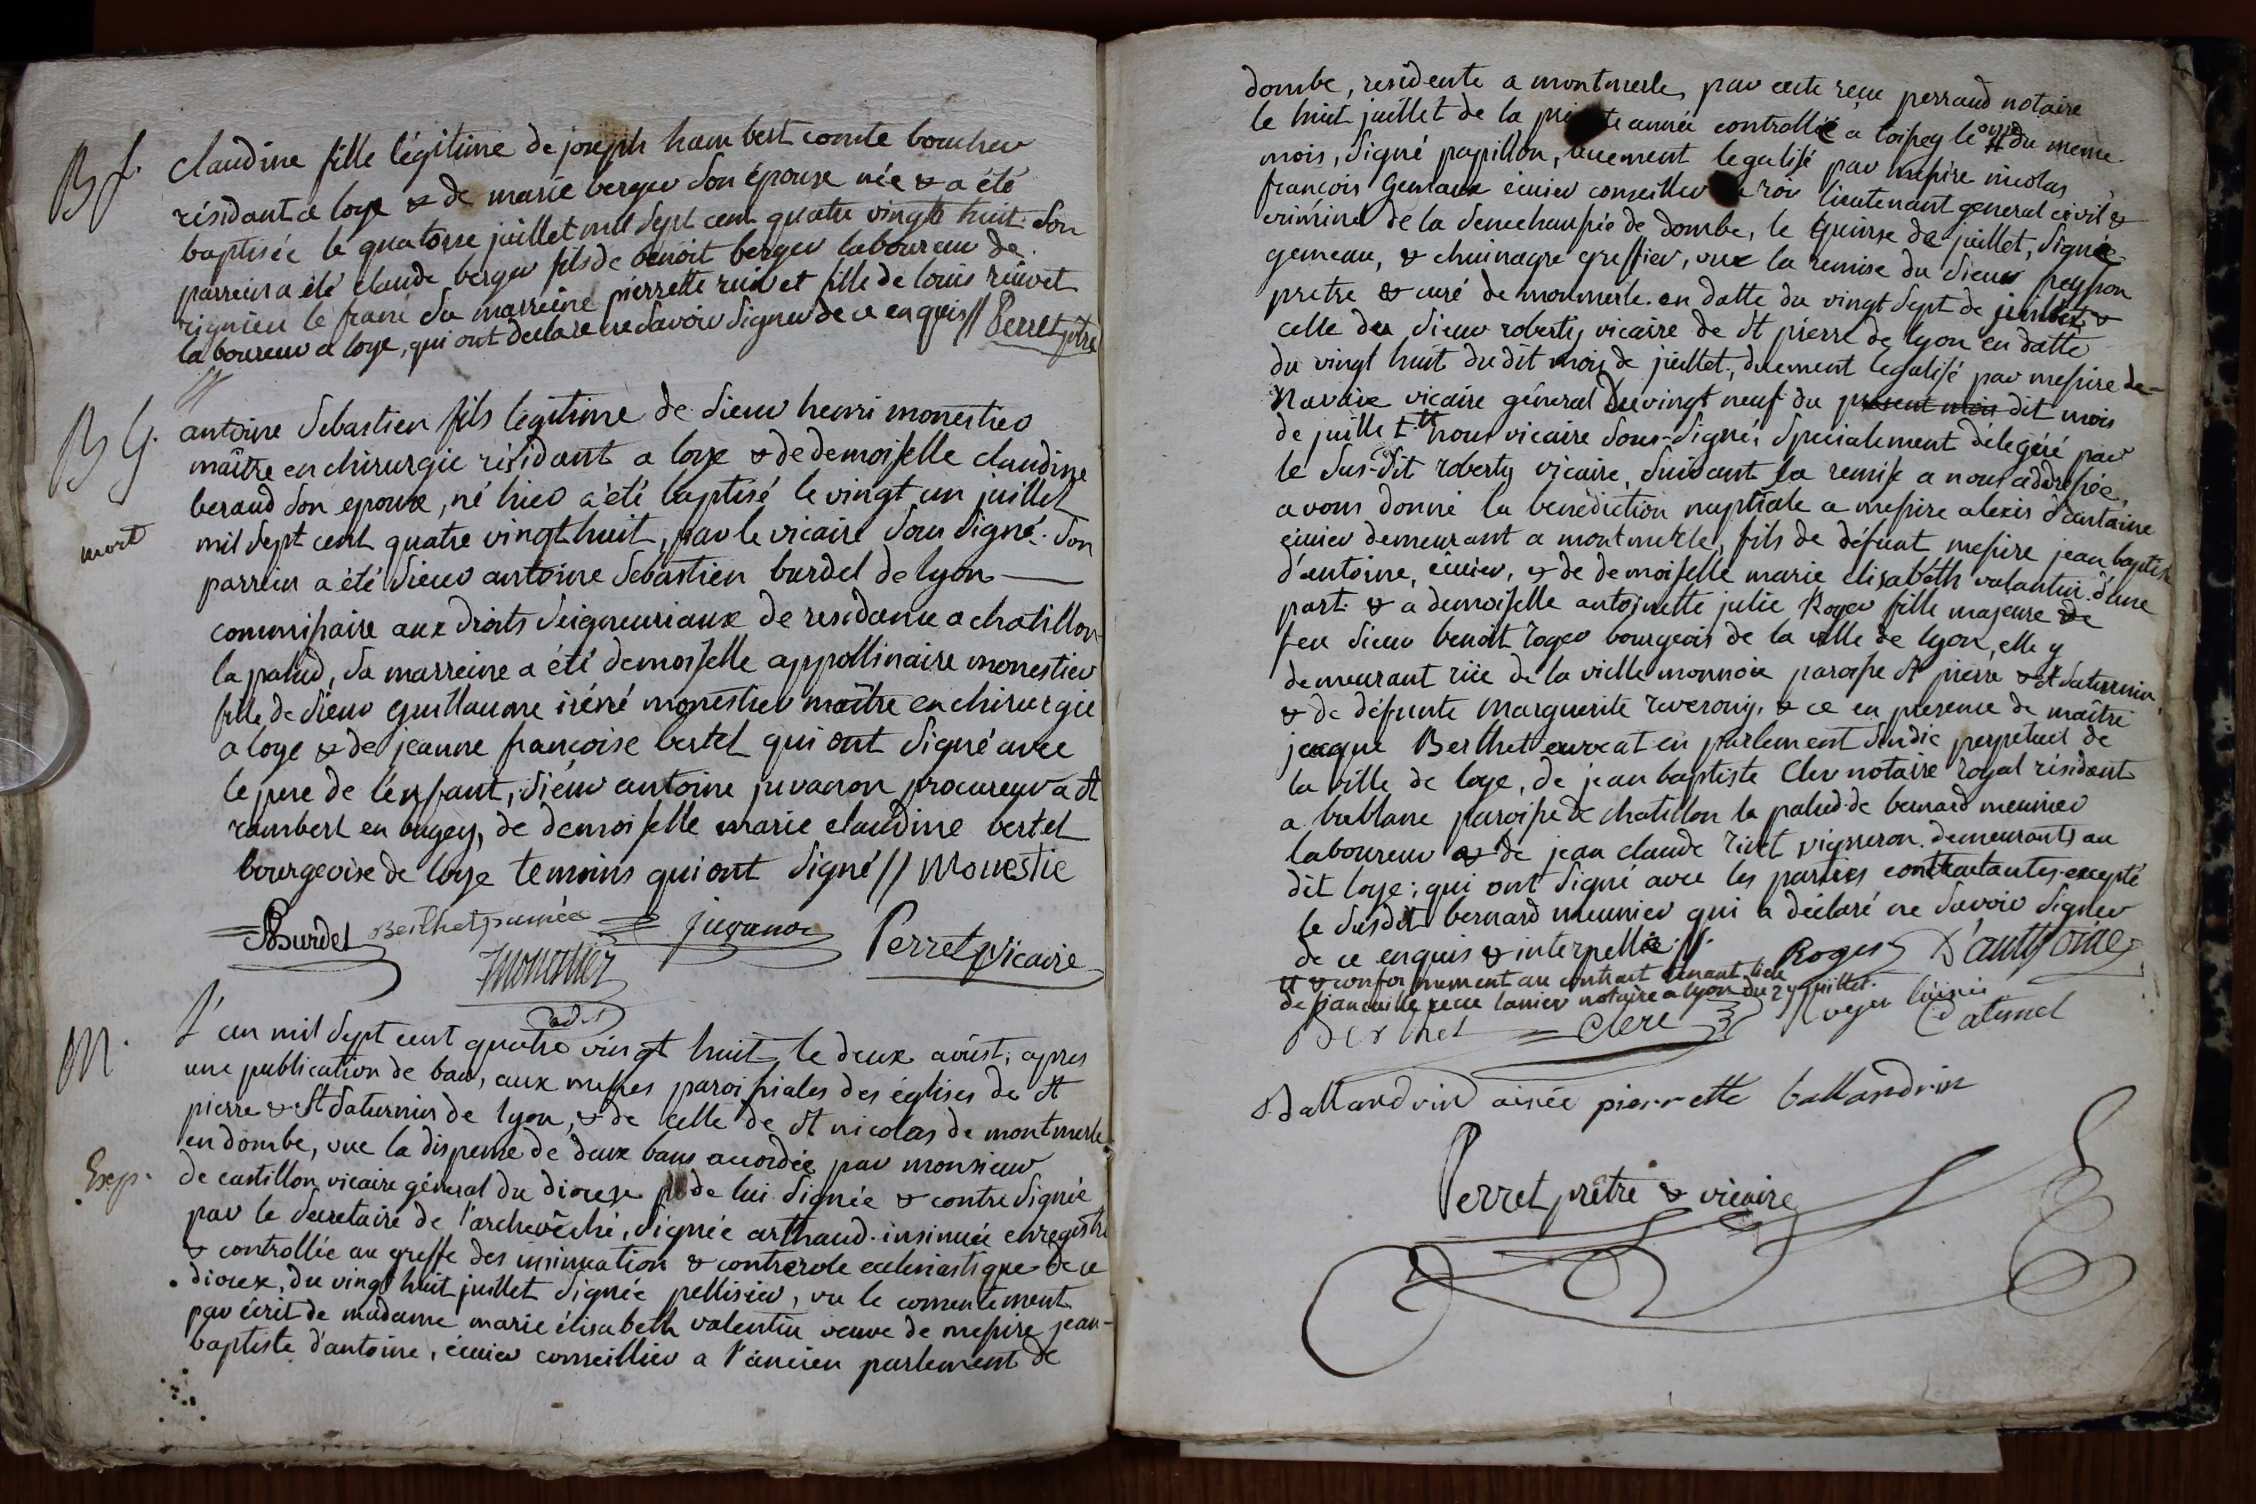 B f.
claudine fille légitime de joseph hambert comte boucher
résidant a loye & de marie berger son épouse née & a été
baptisée le quatorse juillet mil sept cent quatre vingts huit. son
parrein a été claude berger fils de benoit berger laboureur de
rignieu le franc sa marreine pierrette rüivet fille de louis rüivet
laboureur a loye, qui ont declaré ne savoir signer de ce enquis // Perret ptre
B G.
mort
antoine sebastien fils legitime de sieur henri monestier
maître en chirurgie résidant a loye & de demoiselle claudine
beraud son epouse, né hier a été baptisé le vingt un juillet
mil sept cent quatre vingt huit, par le vicaire sous signé. son
parrein a été sieur antoine sebastien burdel de lyon
commissaire aux droits seigneuriaux de residance a chatillon
la palud, sa marreine a été demoiselle appollinaire monestier
fille de sieur guillaume iréné monestier maître en chirurgie
a loye & de jeanne françoise bertet qui ont signé avec
le pere de l'enfant, sieur antoine juvanon procureur a st
rambert en bugey, de demoiselle marie claudine bertet
bourgeoise de loye temoins qui ont signé // Monestie
Burdel Berthet puinée juvanon Perret vicaire
monestier
M.
Exp.
L'an mil sept cent quatre vingt huit le deux aoüst, apres
une publication de ban, aux messes paroissiales des églises de st
pierre & st saturnin de lyon, & de celle de st nicolas de montmerle
en dombe, vue la dispense de deux bans accordée par monsieur
de castillon vicaire géneral du diocese de lui signée & contre signée
par le secretaire de l'archevêché, signée arthaud. insinuée enregistré
& controllée au greffe des insinuation & controrole ecclesiastique de ce
diocese, du vingt huit juillet signée pellisier, vu le consentement
par écrit de madame marie élisabeth valentin veuve de messire jean-
baptiste d'antoine, écuier conseillier a l'ancien parlement de
dombe, residente a montmerle, par acte reçu perraud notaire
le huit juillet de la année controllée a toissey le onze du meme
mois, signé papillon, duement legalisé par messire nicolas
françois gemeau écuier conseiller roi lieutenant general civil &
criminel de la senechaussée de dombe, le quinse de juillet, signée
gemeau, & chuinague greffier, vue la remise du sieur peysson
pretre & curé de monmerle. en datte du vingt sept de juillet, &
celle du sieur roberty vicaire de st pierre de lyon en datte
du vingt huit du dit mois de juillet, duement legalisé par messire de-
Navaire vicaire géneral du vingt neuf du present mois dit mois
de juillet nous vicaire sous-signés specialement délegéré par
le sus-dit roberty vicaire, suivant la remise a nous addressée,
avons donné la benediction nuptiale a messire alexis d'antoine
écuier demeurant a montmerle, fils de défunt messire jean baptiste
d'antoine, écuier, & de demoiselle marie elisabeth valantin d'une
part & a demoiselle antoinette julie Roger fille majeure de
feu sieur benoit roger bourgeois de la ville de lyon, elle y
demeurant rüe de la vielle monnoie paroisse st pierre & st saturnin
& de défunte marguerite reverony, & ce en presence de maître
jacque Berthet avocat en parlement sindic perpetuel de
la ville de loye, de jean baptiste Clerc notaire royal résidant
a bublane paroisse de chatillon la palud. de bernard meunier
laboureur & de jean claude rivet vigneron demeurants au
dit loye; qui ont signé avec les parties contractantes. excepté
le susdit bernard meunier qui a déclaré ne savoir signer
de ce enquis & interpellé //.
Roger D'anthoine
& conformement au contract tenant lieu
de fiancaille reçu lanier notaire a lyon du 27 juillet.
Berthet Clerc
Ballandrin ainée pierrette ballandrin
Perret prêtre & vicaire